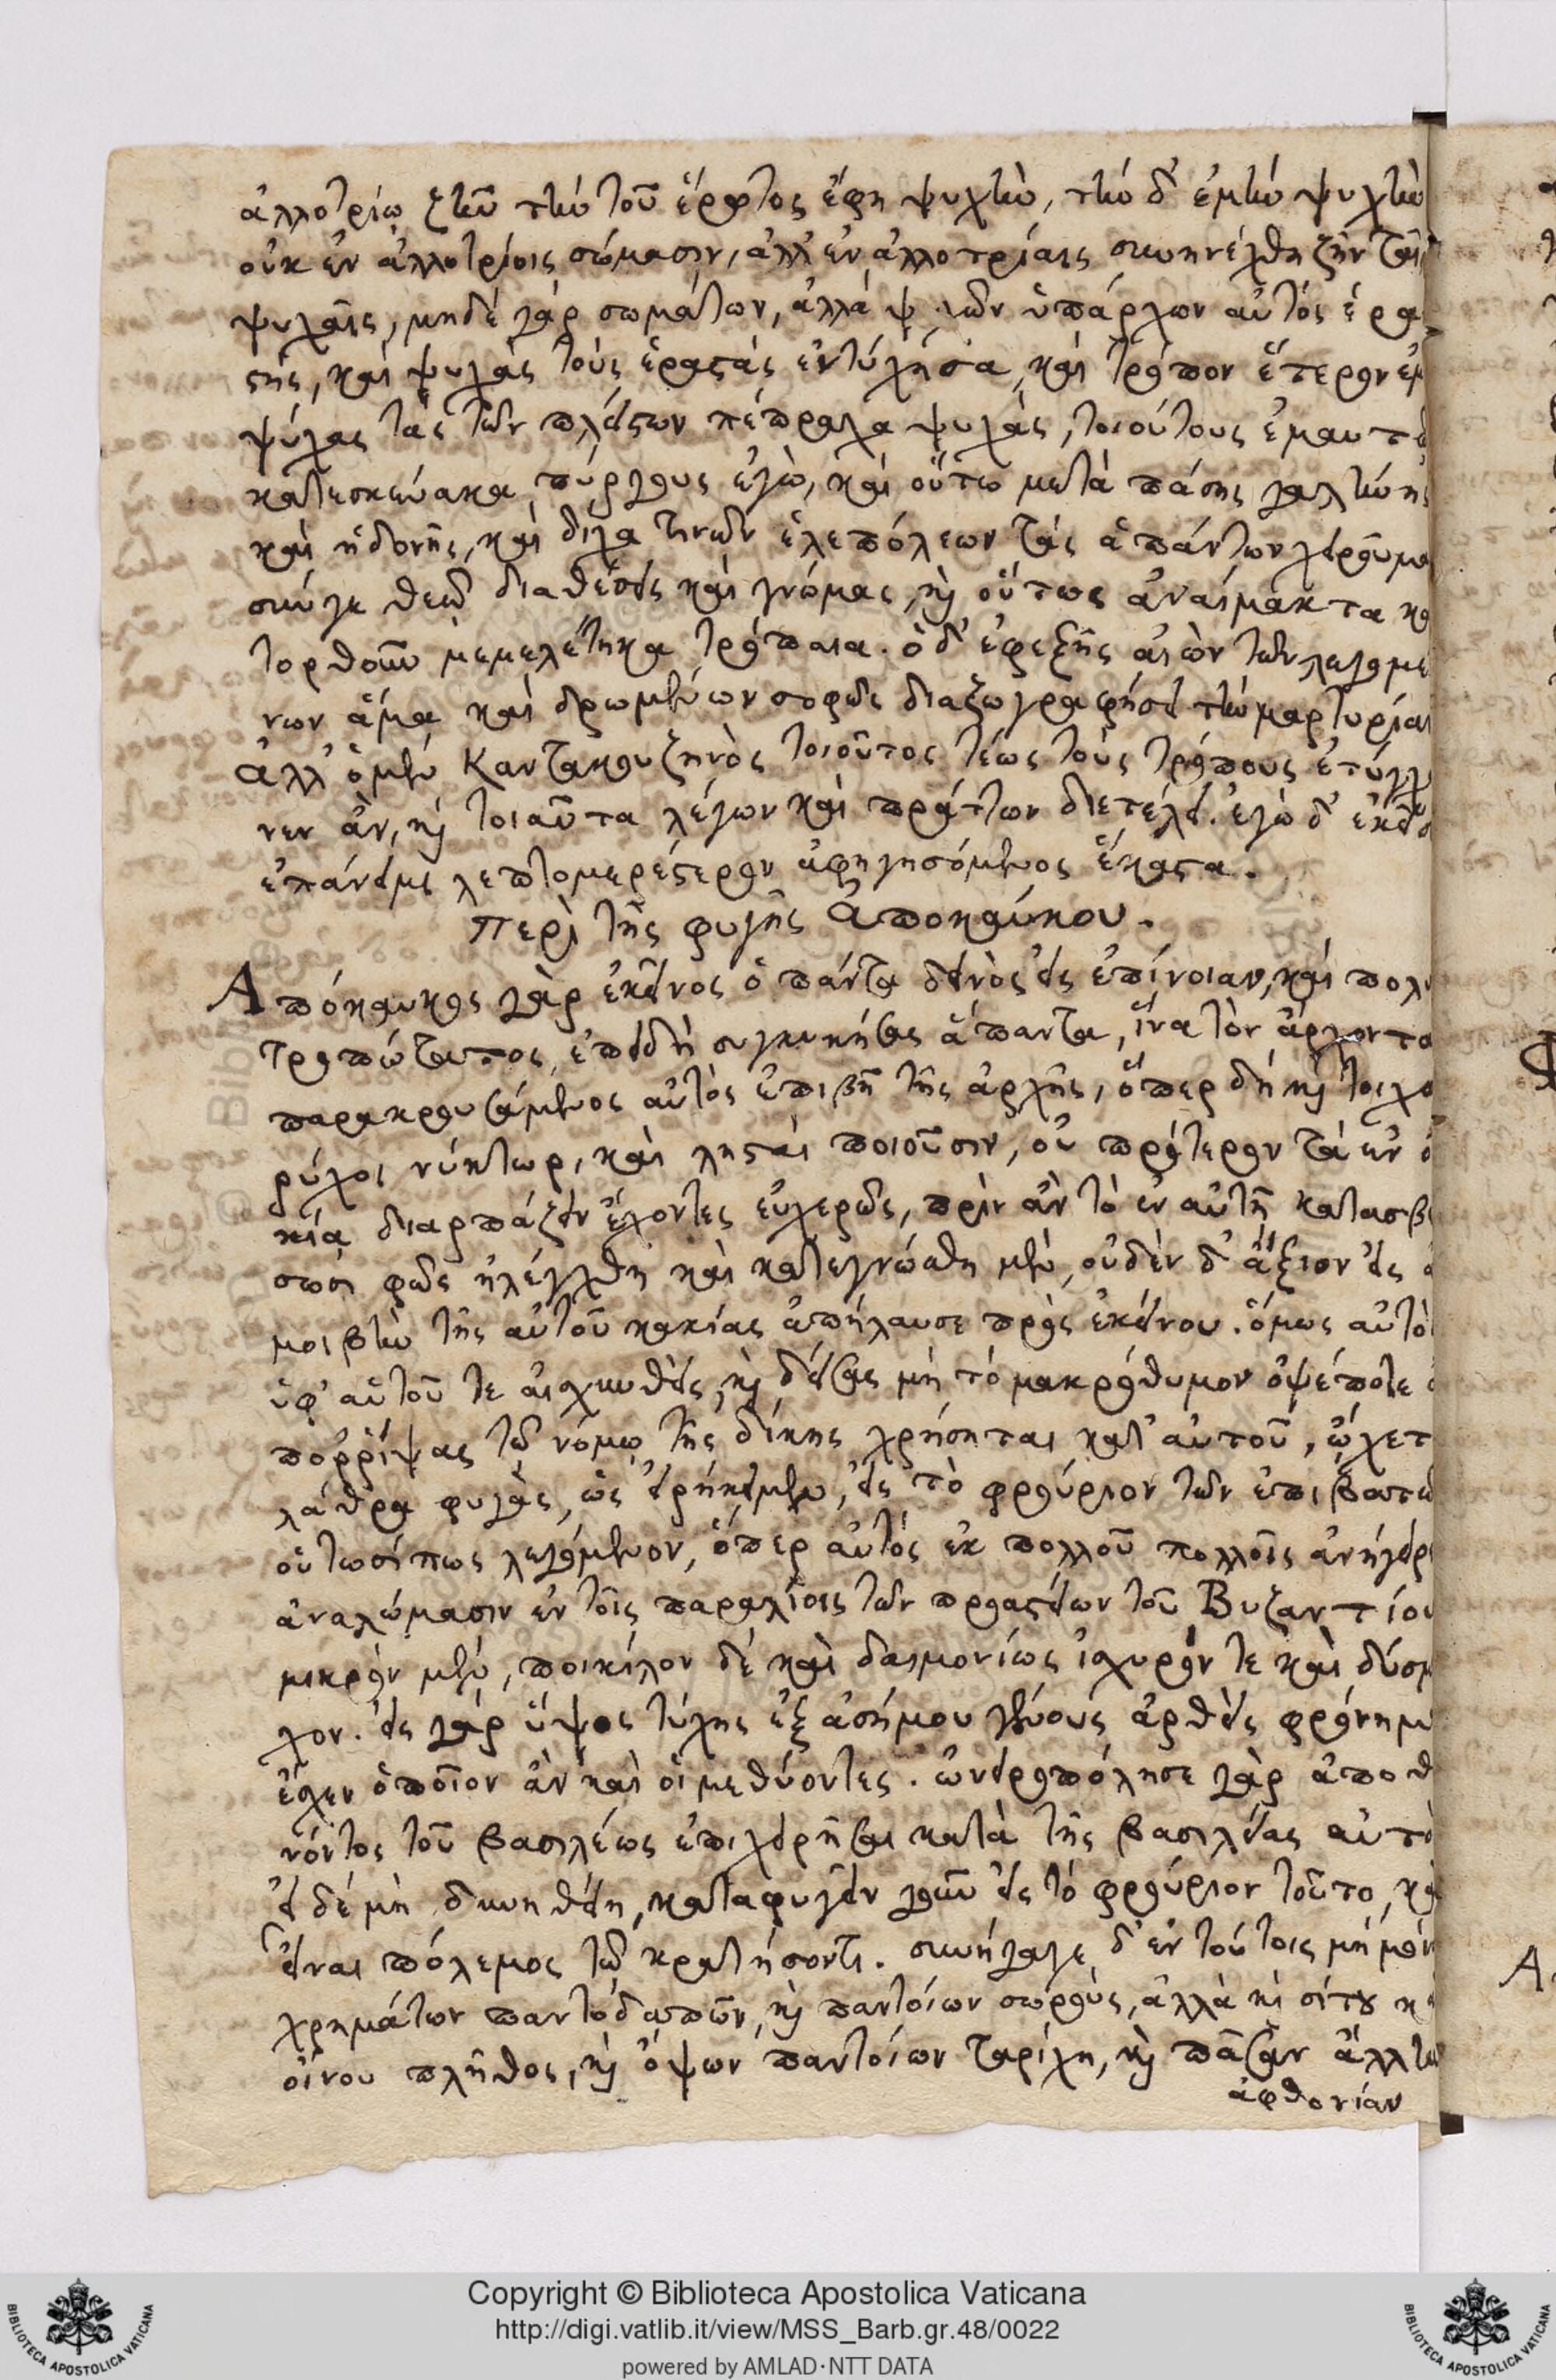 ἀλλοτρίῳ ζῆν τὴν τοῦ ἐρῶντος ἔφη ψυχὴν, τὴν δ' ἐμὴν ψυχὴν
οὐκ ἐν ἀλλοτρίοις σώμασιν, ἀλλ' ἐν ἀλλοτρίαις συνηνέχθη ζῆν ταῖς
ψυχαῖς, μηδὲ γὰρ σωμάτων, ἀλλὰ ψ χῶν ὑπάρχων αὐτὸς ἐρα
στὴς, καὶ ψυχὰς τοὺς ἐραστὰς εὐτύχησα, καὶ τρόπον ἕτερον ἐμ
ψύχας τὰς τῶν πλείστων πέπραχα ψυχὰς, τοιούτους ἐμαυτῷ
κατεσκεύακα πύργους ἐγὼ, καὶ οὕτω μετὰ πάσης γαλήνης
καὶ ἡδονῆς, καὶ δίχα τινῶν ἑλεπόλεων τὰς ἁπάντων χειροῦμαι
σύν γε θεῷ διαθέσεις καὶ γνώμας, καὶ οὕτως ἀναίμακτα κα
τορθοῦν μεμελέτηκα τρόπαια. ὁ δ' ἐφεξῆς αἰὼν τῶν λεγομέ
νων ἅμα καὶ δρωμένων σαφῶς διαζωγραφήσει τὴν μαρτυρίαν
Ἀλλ' ὁ μὲν Καντακουζηνὸς τοιοῦτος τέως τοὺς τρόπους ἐτύγχα
νεν ὢν, καὶ τοιαῦτα λέγων καὶ πράττων διετέλει. ἐγὼ δ' ἐκεῖσ
ἐπάνειμι λεπτομερέστερον ἀφηγησόμενος ἕκαστα.
Περὶ τῆς φυγῆς Ἀποκαύκου.
Ἀπόκαυκος γὰρ ἐκεῖνος ὁ πάντα δεινὸς εἰς ἐπίνοιαν, καὶ πολυ
τροπώτατος, ἐπειδὴ συγκυκήσας ἅπαντα, ἵνα τὸν ἄρχοντα
παρακρουσάμενος αὐτὸς ἐπιβῇ τῆς ἀρχῆς, ὅπερ δὴ καὶ τοιχω
ρύχοι νύκτωρ, καὶ λῃσταὶ ποιοῦσιν, οὐ πρότερον τὰ ἐν οἰ
κίᾳ διαρπάζειν ἔχοντες εὐχερῶς, πρὶν ἂν τὸ ἐν αὐτῇ κατασβέ
σωσι φῶς ἠλέγχθη καὶ κατεγνώσθη μὲν, οὐδὲν δ' ἄξιον εἰς ἀ
μοιβὴν τῆς αὐτοῦ κακίας ἀπήλαυσε πρὸς ἐκείνου. ὅμως αὐτὸς
ὑφ' αὑτοῦ τε αἰσχυνθεὶς, καὶ δείσας μὴ τὸ μακρόθυμον ὀψέποτε ἀ
πορρίψας τῷ νόμῳ τῆς δίκης χρήσηται κατ' αὐτοῦ, ᾤχετ
λάθρα φυγὰς, ὡς εἰρήκειμεν, εἰς τὸ φρούριον τῶν ἐπιβατῶν
οὑτωσίπως λεγόμενον, ὅπερ αὐτὸς ἐκ πολλοῦ πολλοῖς ἀνήγειρε
ἀναλώμασιν ἐν τοῖς παραλίοις τῶν προαστείων τοῦ Βυζαντίου
μικρὸν μὲν, ποικίλον δὲ καὶ δαιμονίως ἰσχυρόν τε καὶ δύσμ
χον. εἰς γὰρ ὕψος τύχης ἐξ ἀσήμου γένους ἀρθεὶς φρόνημα
ἔσχεν ὁποῖον ἂν καὶ οἱ μεθύοντες. ὠνειροπόλησε γὰρ ἀποθ
νόντος τοῦ βασιλέως ἐπιχειρῆσαι κατὰ τῆς βασιλείας αὐτὸ
εἰ δὲ μὴ δυνηθείη, καταφυγεῖν γοῦν εἰς τὸ φρούριον τοῦτο, κα
εἶναι πόλεμος τῷ κρατήσοντι. συνήγαγε δ' ἐν τούτοις μὴ μόν
χρημάτων παντοδαπῶν, καὶ παντοίων σωροὺς, ἀλλὰ καὶ σίτου κ
οἴνου πλῆθος, καὶ ὄψων παντοίων ταρίχη, καὶ πᾶσαν ἄλλην
ἀφθονίαν
Copyright © Biblioteca Apostolica Vaticana
http://digi.vatlib.it/view/MSS_Barb.gr.48/0022
powered by AMLAD·NTT DATA